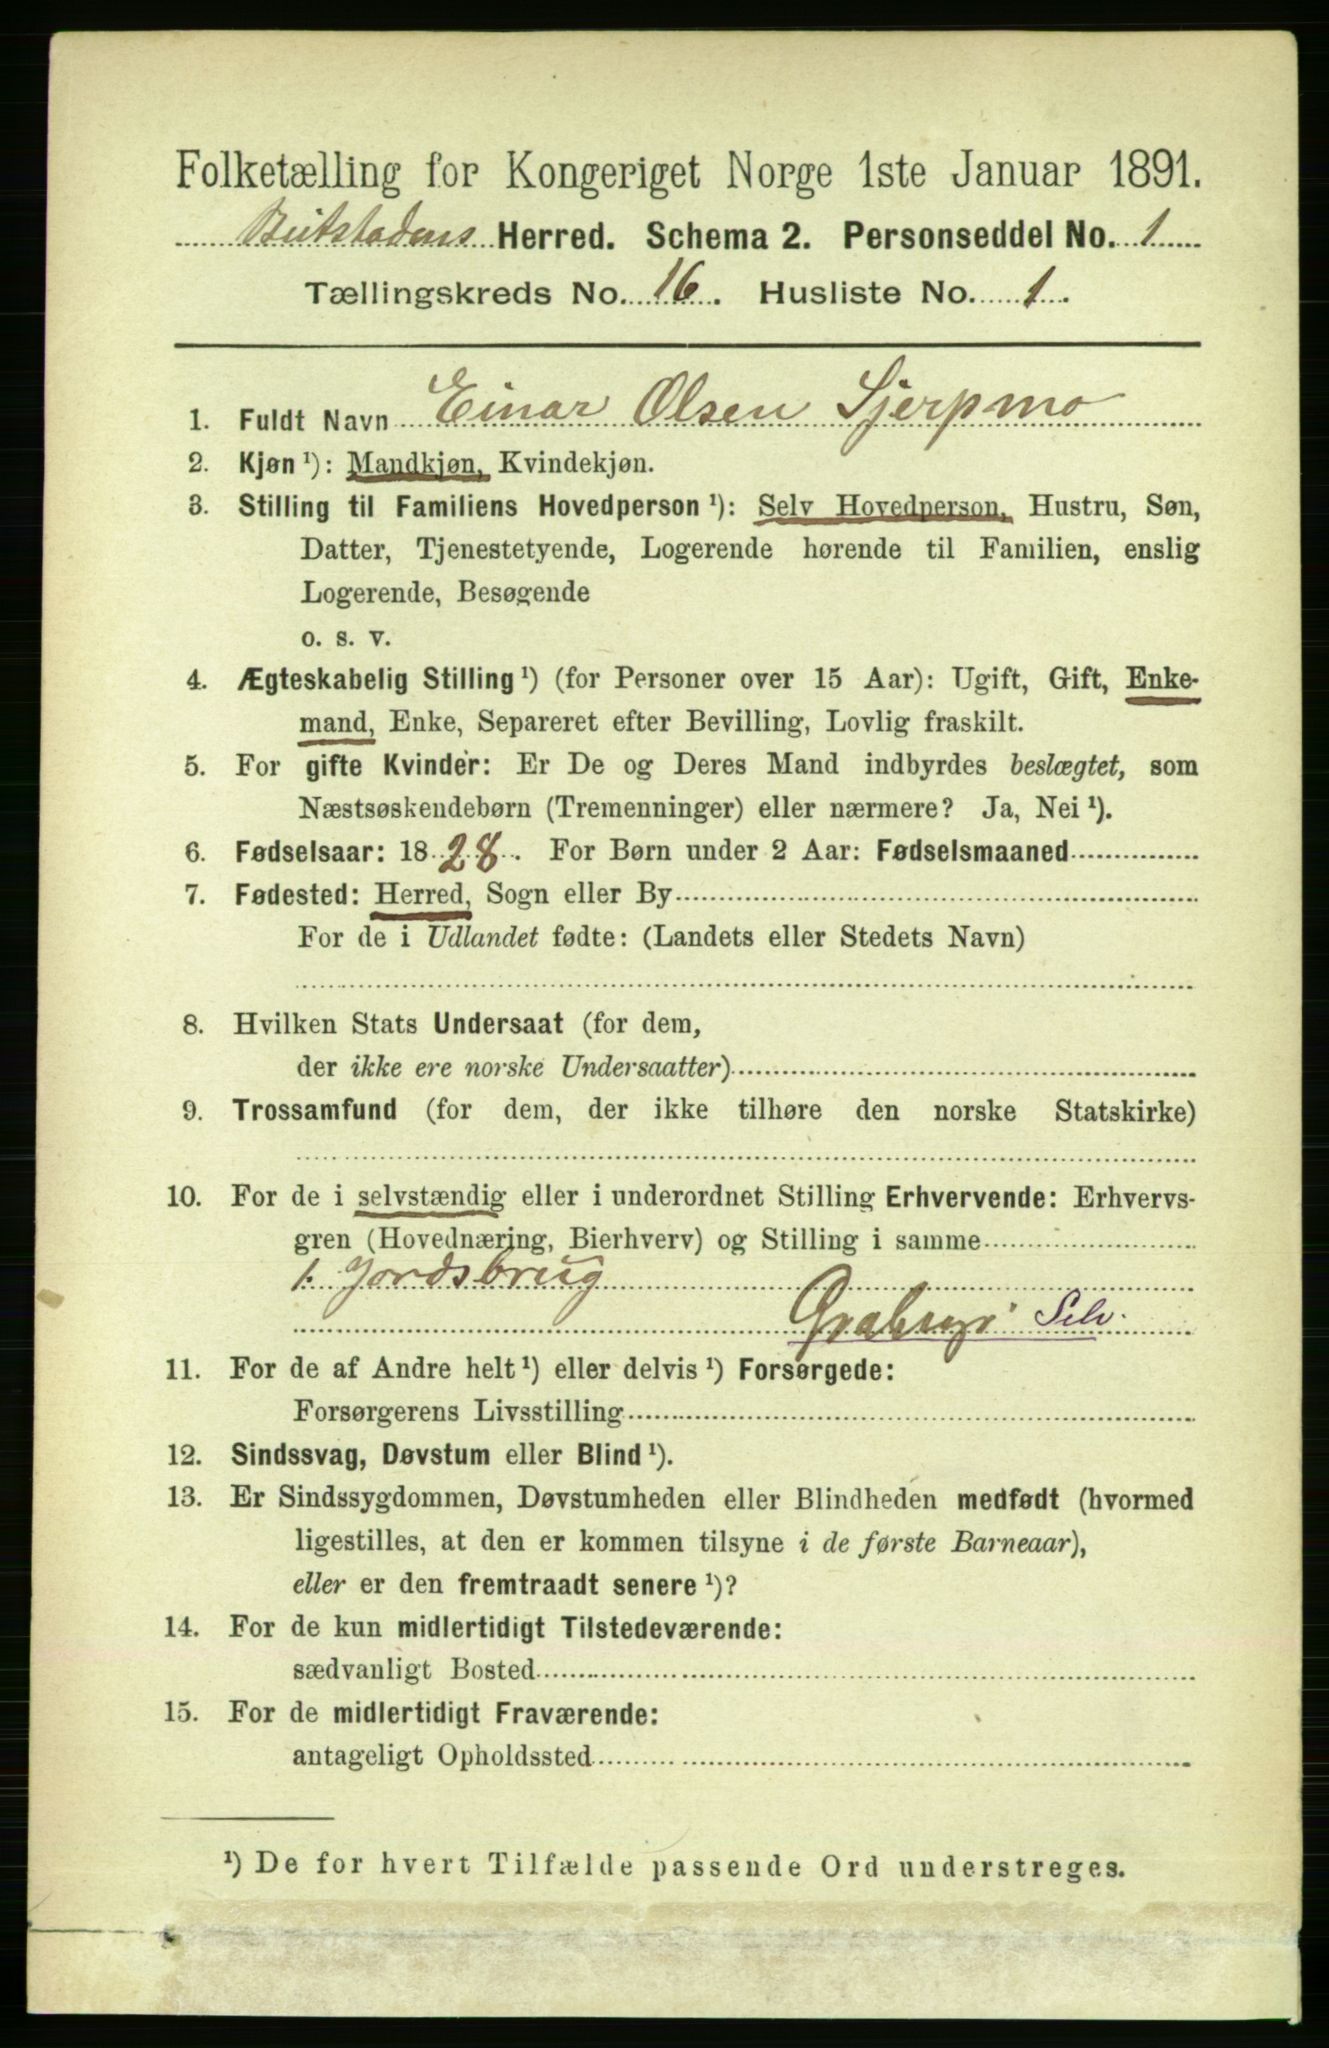 Folketælling for Kongeriget Norge 1ste Januar 1891.
Beitstadens Herred. Schema 2. Personseddel No. 1
Tællingskreds No. 16. Husliste No. 1.
1. Fuldt Navn Einar Olsen Sjerpmo
2. Kjøn ¹): Mandkjøn, Kvindekjøn.
3. Stilling til Familiens Hovedperson ¹): Selv Hovedperson, Hustru, Søn,
Datter, Tjenestetyende, Logerende hørende til Familien, enslig
Logerende, Besøgende
o. s. v.
4. Ægteskabelig Stilling ¹) (for Personer over 15 Aar): Ugift, Gift, Enke-
mand, Enke, Separeret efter Bevilling, Lovlig fraskilt.
5. For gifte Kvinder: Er De og Deres Mand indbyrdes beslægtet, som
Næstsøskendebørn (Tremenninger) eller nærmere? Ja, Nei ¹).
6. Fødselsaar: 1828. For Børn under 2 Aar: Fødselsmaaned
7. Fødested: Herred, Sogn eller By
For de i Udlandet fødte: (Landets eller Stedets Navn)
8. Hvilken Stats Undersaat (for dem,
der ikke ere norske Undersaatter)
9. Trossamfund (for dem, der ikke tilhøre den norske Statskirke)
10. For de i selvstændig eller i underordnet Stilling Erhvervende: Erhvervs-
gren (Hovednæring, Bierhverv) og Stilling i samme
1. Jordsbrug
Selv.
11. For de af Andre helt ¹) eller delvis ¹) Forsørgede:
Forsørgerens Livsstilling
12. Sindssvag, Døvstum eller Blind ¹).
13. Er Sindssygdommen, Døvstumheden eller Blindheden medfødt (hvormed
ligestilles, at den er kommen tilsyne i de første Barneaar),
eller er den fremtraadt senere ¹)?
14. For de kun midlertidigt Tilstedeværende:
sædvanligt Bosted
15. For de midlertidigt Fraværende:
antageligt Opholdssted
¹) De for hvert Tilfælde passende Ord understreges.